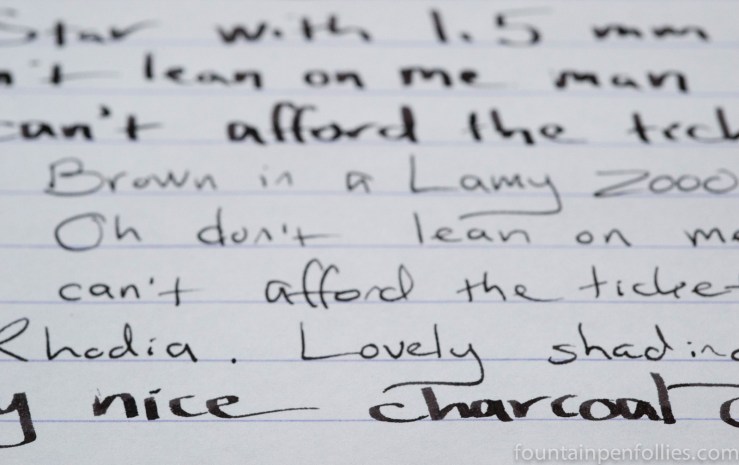 Star with 1.5 mm
n't lean on me man
can't afford the tick
Brown in a Lamy 2000
Oh don't lean on me
can't afford the ticke
Rhodia. Lovely shading
y nice charcoal
fountainpenfollies.com